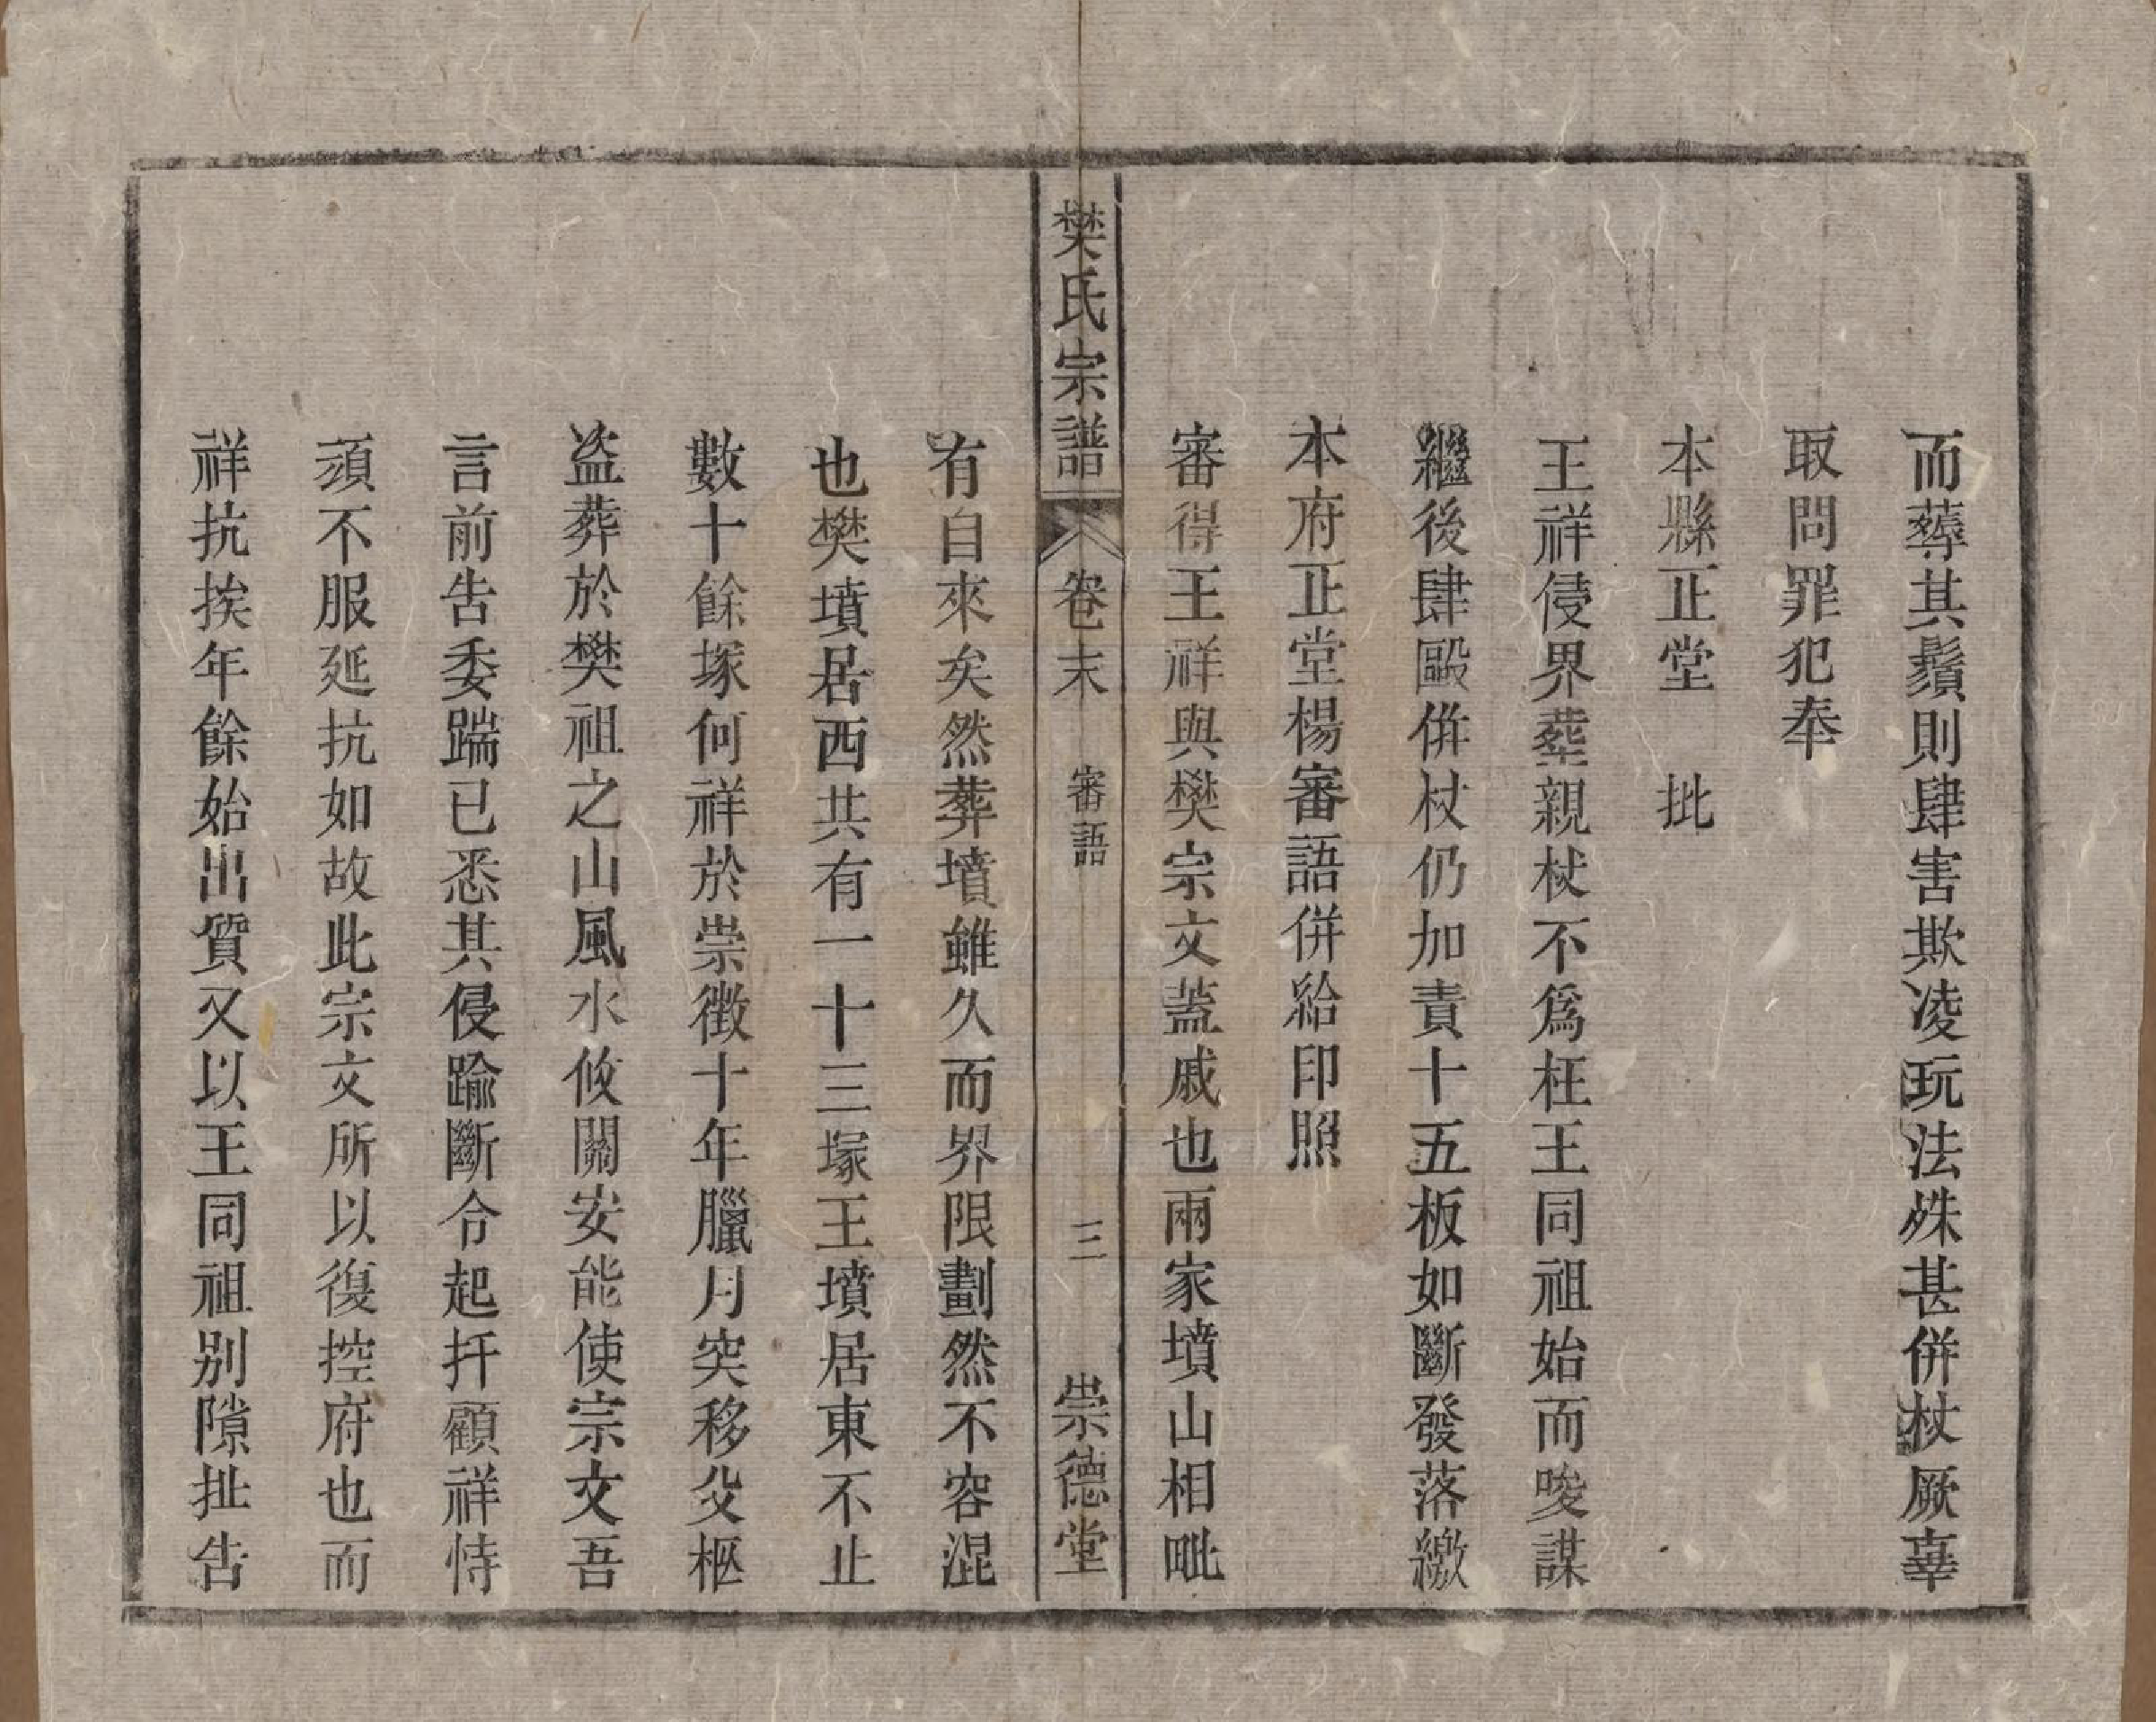 而薅其鬚則肆害欺凌玩法殊甚併杖厥辜
取問罪犯奉
本縣正堂　批
王祥侵界塟親杖不爲枉王同祖始而唆謀
繼後肆毆併杖仍加責十五板如斷發落繳
本府正堂楊審語併給印照
審得王祥與樊宗文葢戚也兩家墳山相毗
樊氏宗譜　卷末　審語　三　崇德堂
有自來矣然葬墳雖久而界限劃然不容混
也樊墳居西共有一十三塚王墳居東不止
數十餘塚何祥於崇徵十年臘月突移父柩
盗葬於樊祖之山風水攸關安能使宗文吾
言前告委踹已悉其侵踰斷令起扦顧祥恃
頑不服延抗如故此宗文所以復控府也而
祥抗挨年餘始出質又以王同祖别隙扯告